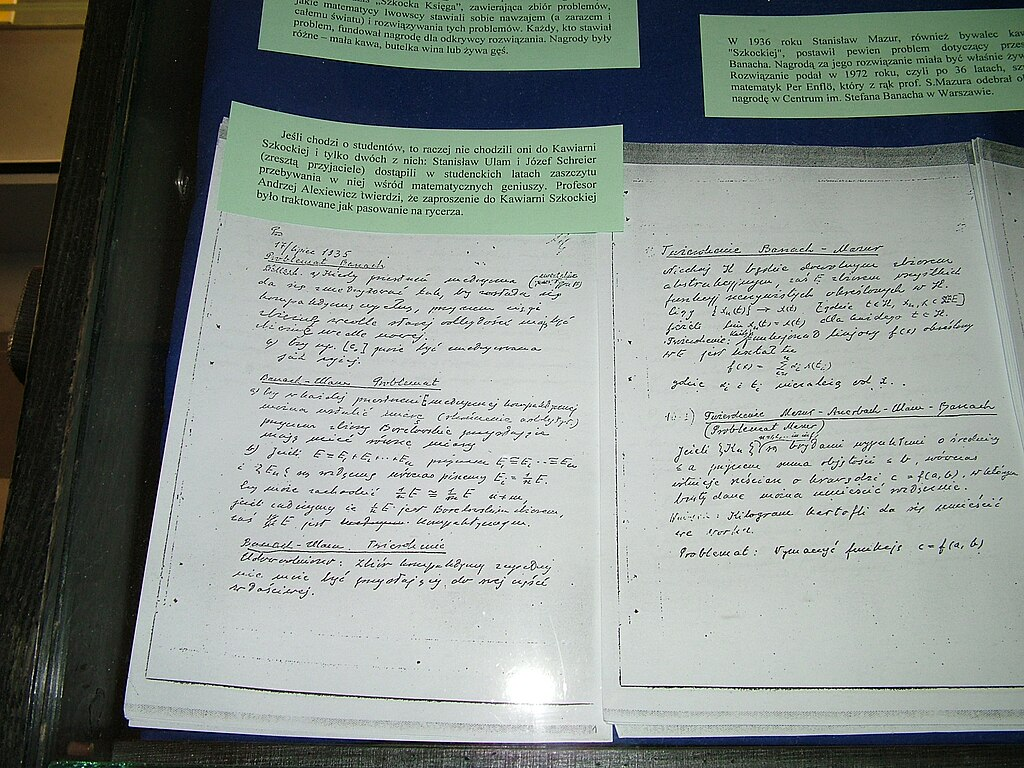 "Szkocka Księga", zawierająca zbiór problemów,
jakie matematycy lwowscy stawiali sobie nawzajem (a zarazem i
całemu światu) i rozwiązywania tych problemów. Każdy, kto stawiał
problem, fundował nagrodę dla odkrywcy rozwiązania. Nagrody były
różne – mała kawa, butelka wina lub żywa gęś.
W 1936 roku Stanisław Mazur, również bywalec
"Szkockiej", postawił pewien problem dotyczący
Banacha. Nagrodą za jego rozwiązanie miała być właśnie
Rozwiązanie podał w 1972 roku, czyli po 36 latach,
matematyk Per Enflö, który z rąk prof. S.Mazura odebrał
nagrodę w Centrum im. Stefana Banacha w Warszawie.
Jeśli chodzi o studentów, to raczej nie chodzili oni do Kawiarni
Szkockiej i tylko dwóch z nich: Stanisław Ulam i Józef Schreier
(zresztą przyjaciele) dostąpili w studenckich latach zaszczytu
przebywania w niej wśród matematycznych geniuszy. Profesor
Andrzej Alexiewicz twierdzi, że zaproszenie do Kawiarni Szkockiej
było traktowane jak pasowanie na rycerza.
17/lipiec 1935
Problemat Banach
Kiedy przestrzeń metryczna
da się zmetryzować tak, by została się
kompaktyczną
zbieżne wedle starej odległości mają być
zbieżne wedle nowej.
może być zmetryzowana
jak wyżej.
Banach-Ulam Problemat
a) Czy w każdej przestrzeni E metrycznej kompaktycznej
można ustalić miarę
przyczem zbiory Borelowskie przystające
mają mieć równe miary
b) Jeżeli E = E₁ + E₂ + ... + Eₙ przyczem E₁ ≅ E₂ ≅ ... ≅ Eₙ
i {Eₙ} są rozłączne wówczas piszemy Eᵢ = 1/n E.
Czy może zachodzić 1/n E ≅ 1/m E n≠m,
jeżeli zakładamy że E jest borelowskim zbiorem,
zaś E jest kompaktycznym.
Banach-Ulam Twierdzenie
Udowodniono: Zbiór kompaktyczny zupełny
nie może być przystający do swej części
właściwej.
Twierdzenie Banach – Mazur
Niechaj H będzie dowolnym zbiorem
abstrakcyjnym, zaś E zbiorem wszystkich
funkcji rzeczywistych określonych w H.
jeżeli lim xₙ(t) = x(t) dla każdego t ∈ H.
Twierdzenie: każdy funkcjonał liniowy f(x) określony
w E jest kształtu
f(x) = Σ αᵢ x(tᵢ)
gdzie αᵢ i tᵢ niezależą od x.
10.1) Twierdzenie Mazur – Auerbach – Ulam – Banach
(Problemat Mazur)
Jeżeli {Kₙ} są bryłami wypukłemi o średnicy
≤ a przyczem suma objętości ≤ b, wówczas
istnieje sześcian o krawędzi c = f(a, b), w którym
bryły dane można umieścić rozłącznie.
Wniosek: Kilogram kartofli da się umieścić
we worku.
Problemat: Wyznaczyć funkcję c = f(a, b)